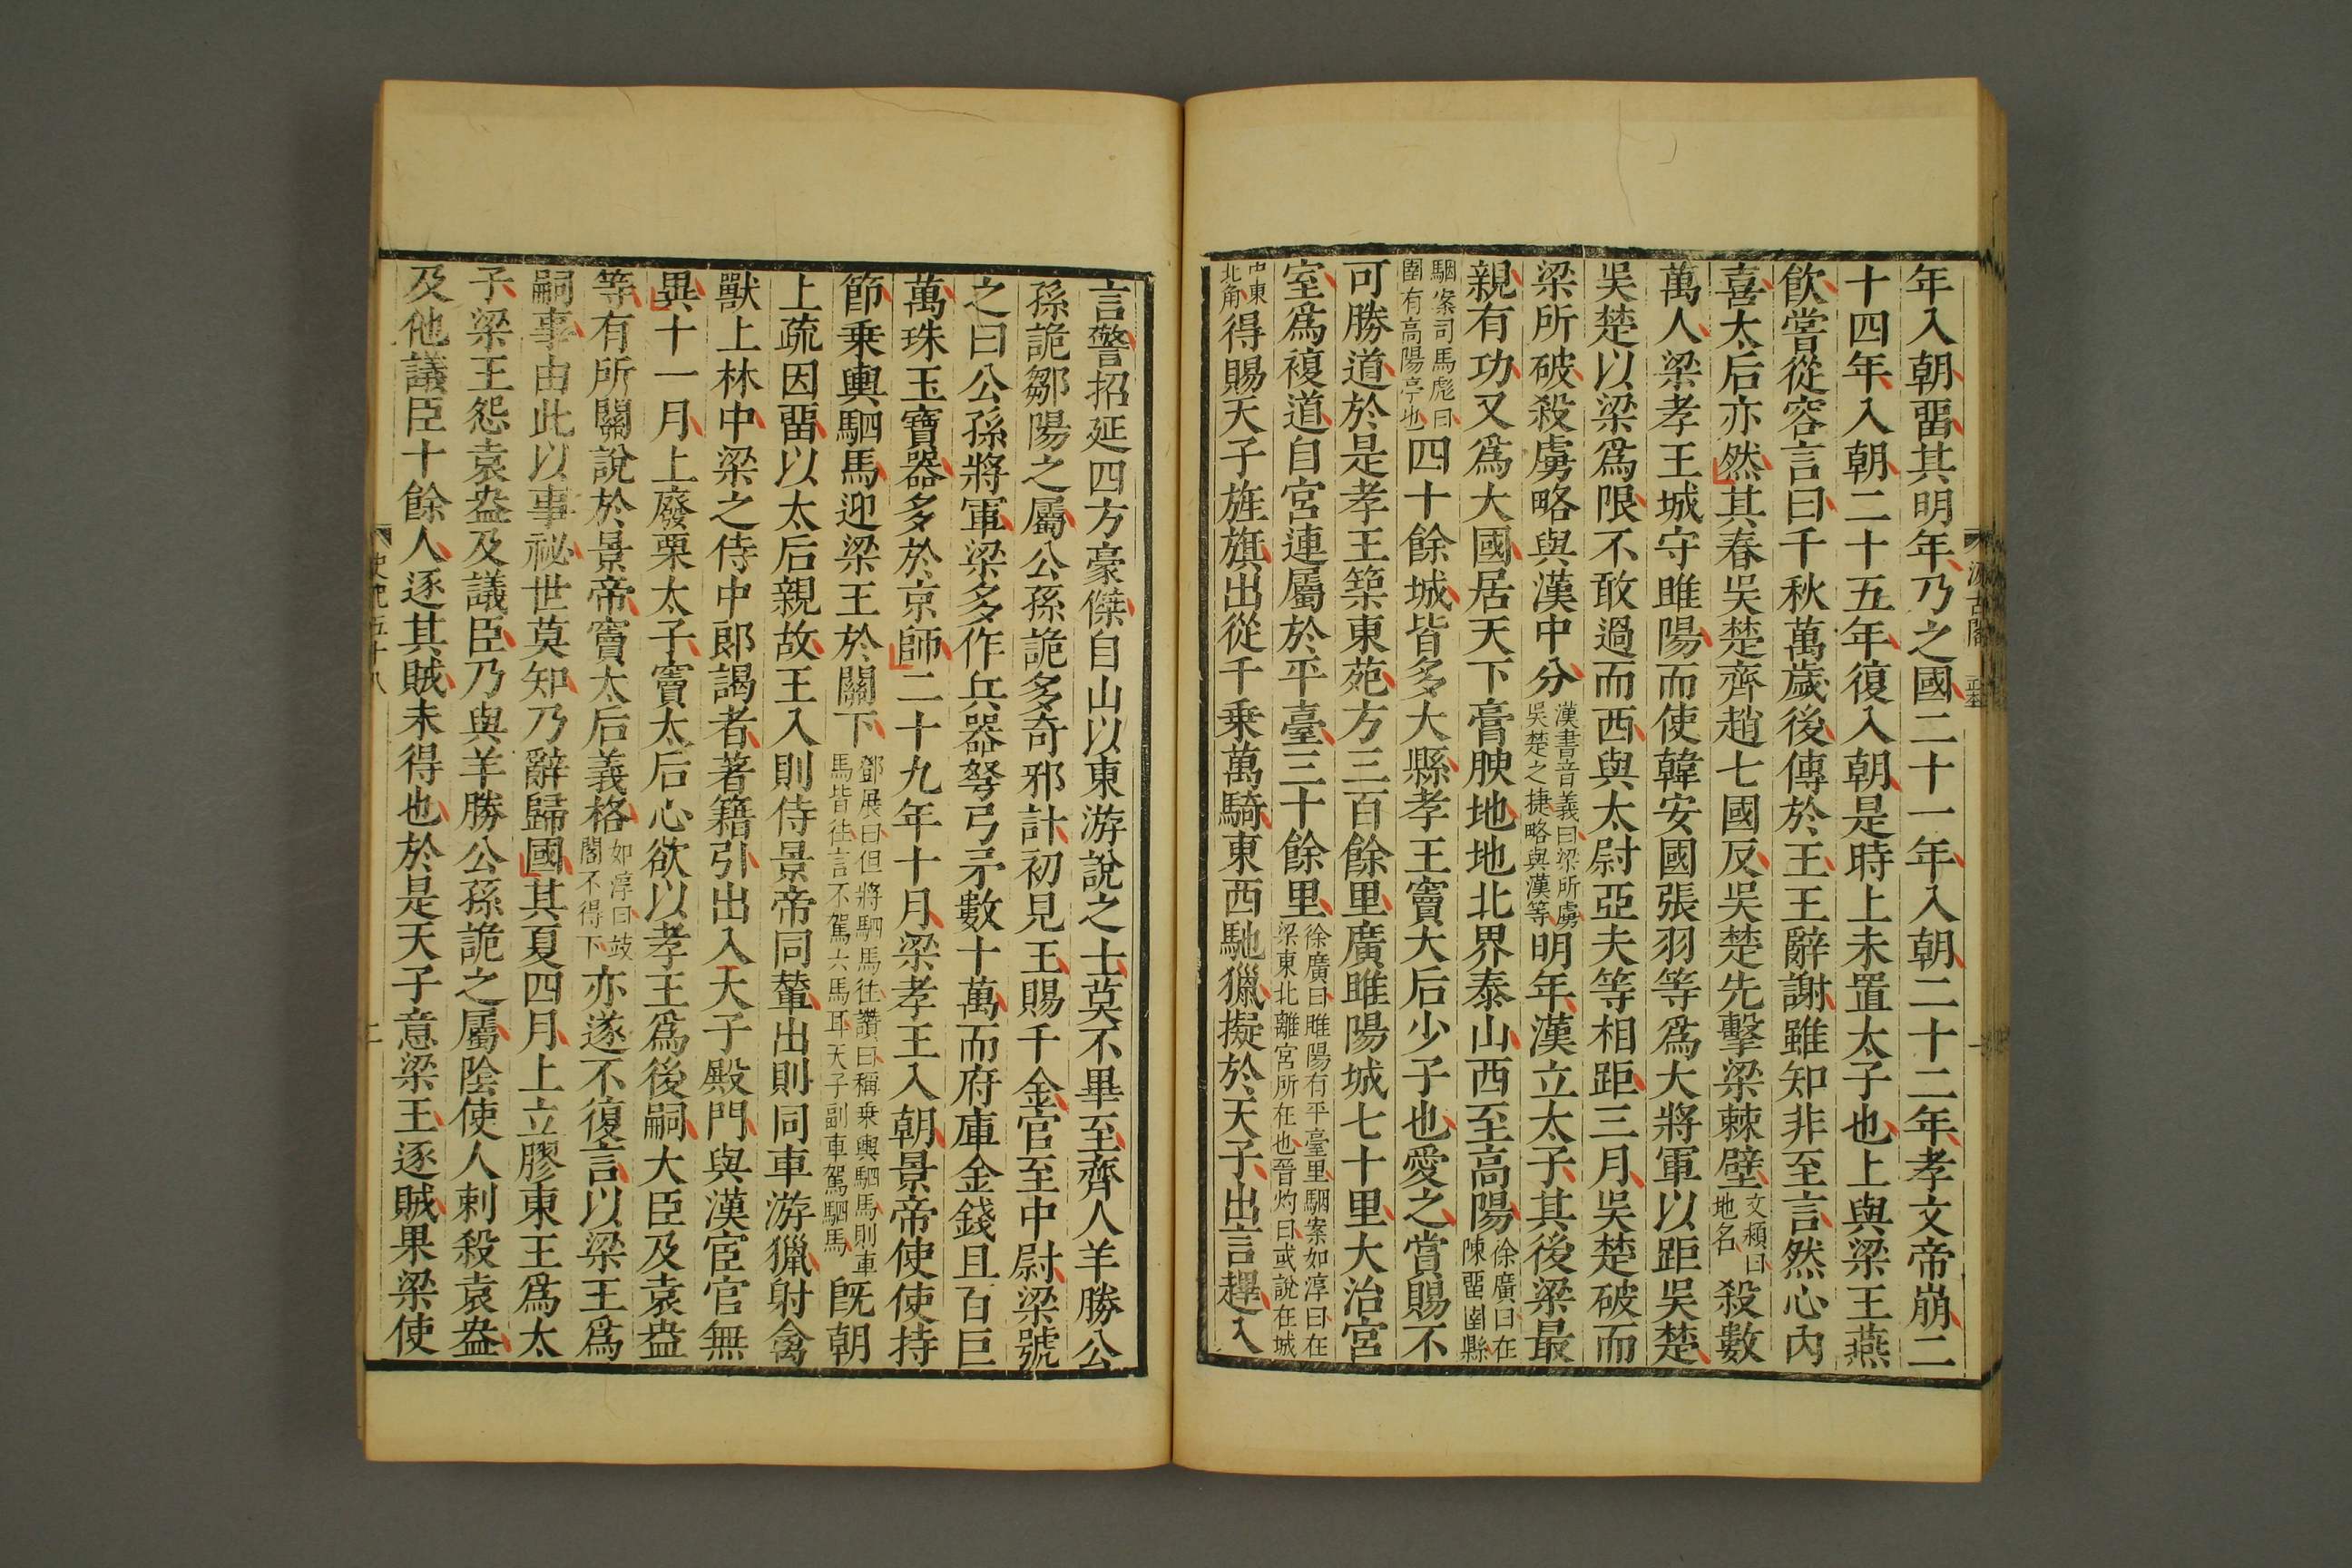 年入朝畱其明年乃之國二十一年入朝二十二年孝文帝崩二
十四年入朝二十五年復入朝是時上未置太子也上與梁王燕
飲嘗從容言曰千秋萬歲後傳於王王辭謝雖知非至言然心內
喜太后亦然其春吳楚齊趙七國反吳楚先擊梁棘壁文穎曰地名殺數
萬人梁孝王城守雎陽而使韓安國張羽等爲大將軍以距吳楚
吳楚以梁爲限不敢過而西與太尉亞夫等相距三月吳楚破而
梁所破殺虜略與漢中分漢書音義曰梁所虜吳楚之捷略與漢等明年漢立太子其後梁最
親有功又爲大國居天下膏腴地地北界泰山西至高陽徐廣曰在陳畱圉縣
駰案司馬彪曰圉有高陽亭也四十餘城皆多大縣孝王竇大后少子也愛之賞賜不
可勝道於是孝王築東苑方三百餘里廣雎陽城七十里大治宮
室爲複道自宮連屬於平臺三十餘里徐廣曰雎陽有平臺里駰案如淳曰在梁東北離宮所在也晉灼曰或說在城
中東北角得賜天子旌旗出從千乗萬騎東西馳獵擬於天子出言趩入
言警招延四方豪傑自山以東游說之士莫不畢至齊人羊勝公
孫詭鄒陽之屬公孫詭多奇邪計初見王賜千金官至中尉梁號
之曰公孫將軍梁多作兵器弩弓矛數十萬而府庫金錢且百巨
萬珠玉寶器多於京師二十九年十月梁孝王入朝景帝使使持
節乗輿駟馬迎梁王於關下鄧展曰但將駟馬往讚曰稱乗輿駟馬則車馬皆往言不駕六馬耳天子副車駕駟馬旣朝
上疏因畱以太后親故王入則侍景帝同輦出則同車游獵射禽
獸上林中梁之侍中郎謁者著籍引出入天子殿門與漢宦官無
異十一月上廢栗太子竇太后心欲以孝王爲後嗣大臣及袁盎
等有所關說於景帝竇太后義格如淳曰歧閣不得下亦遂不復言以梁王爲
嗣事由此以事祕世莫知乃辭歸國其夏四月上立膠東王爲太
子梁王怨袁盎及議臣乃與羊勝公孫詭之屬陰使人刺殺袁盎
及他議臣十餘人逐其賊未得也於是天子意梁王逐賊果梁使
史記五十八